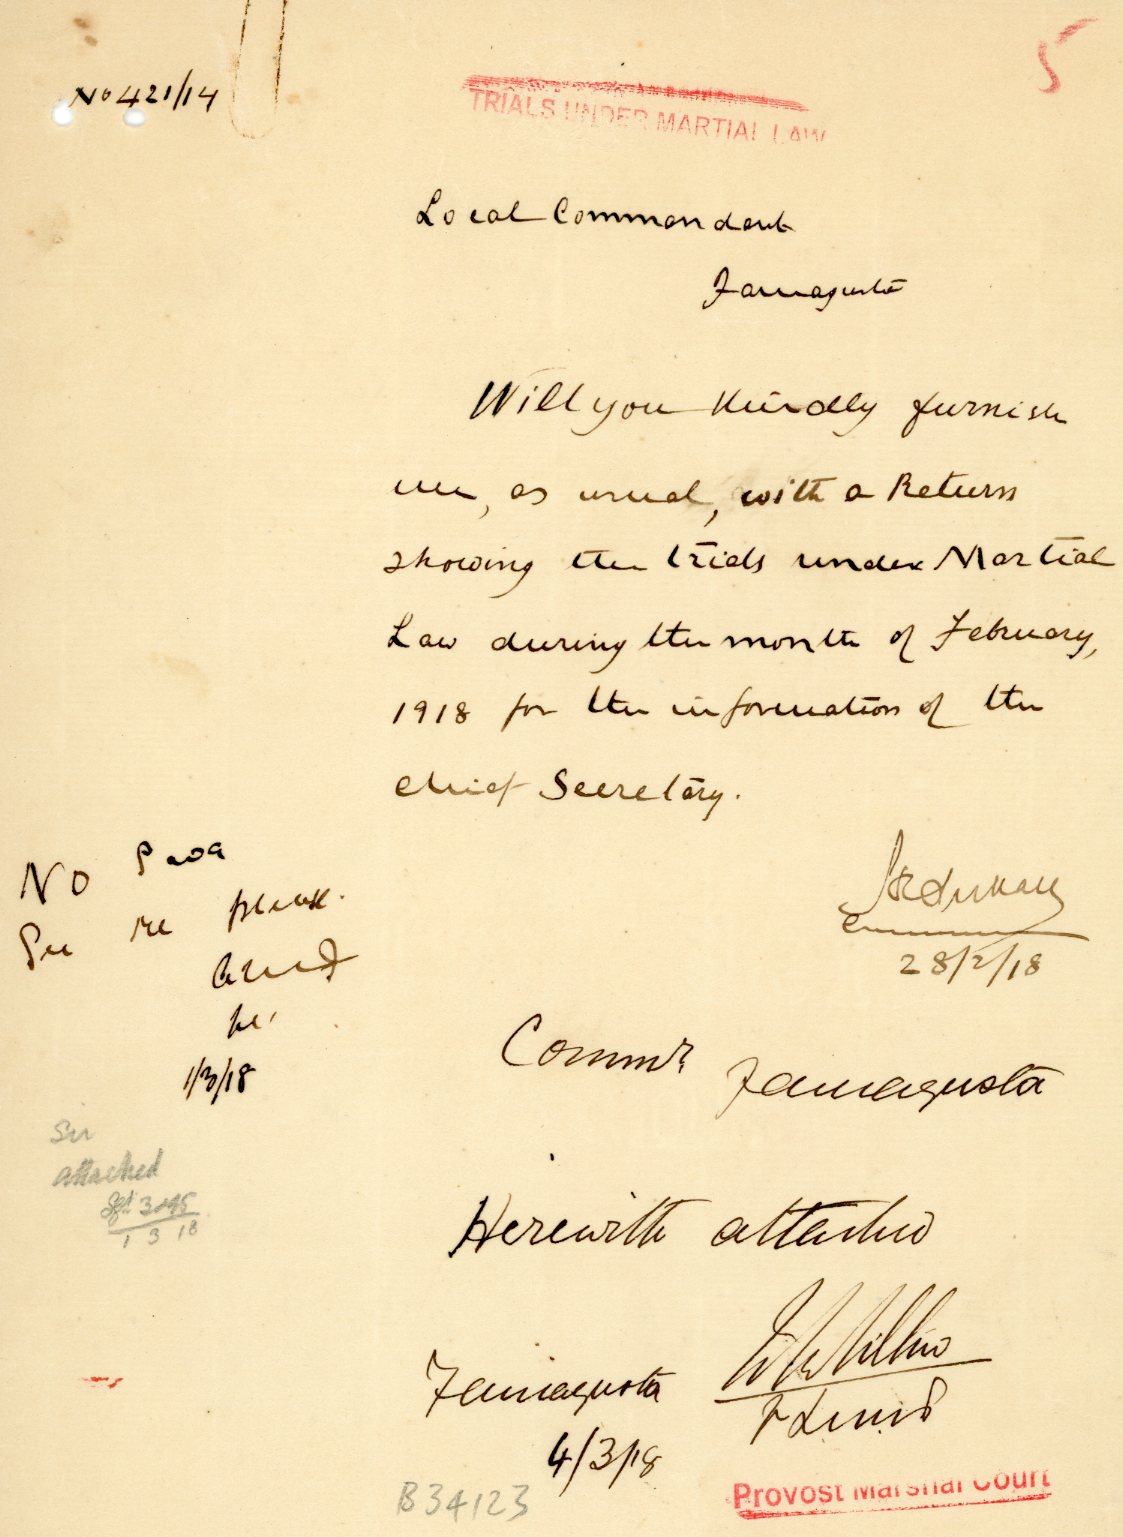 No 421/14
5
TRIALS UNDER MARTIAL LAW
Local Commandant
Famagusta
Will you kindly furnish
me, as usual, with a Return
showing the trials under Martial
Law during the month of February,
1918 for the information of the
Chief Secretary.
28/2/18
No
please.
1/3/18
Commr
Famagusta
Sir
attached
1 3 18
Herewith attached
Famagusta
4/3/18
B34123
Provost Marshal Court